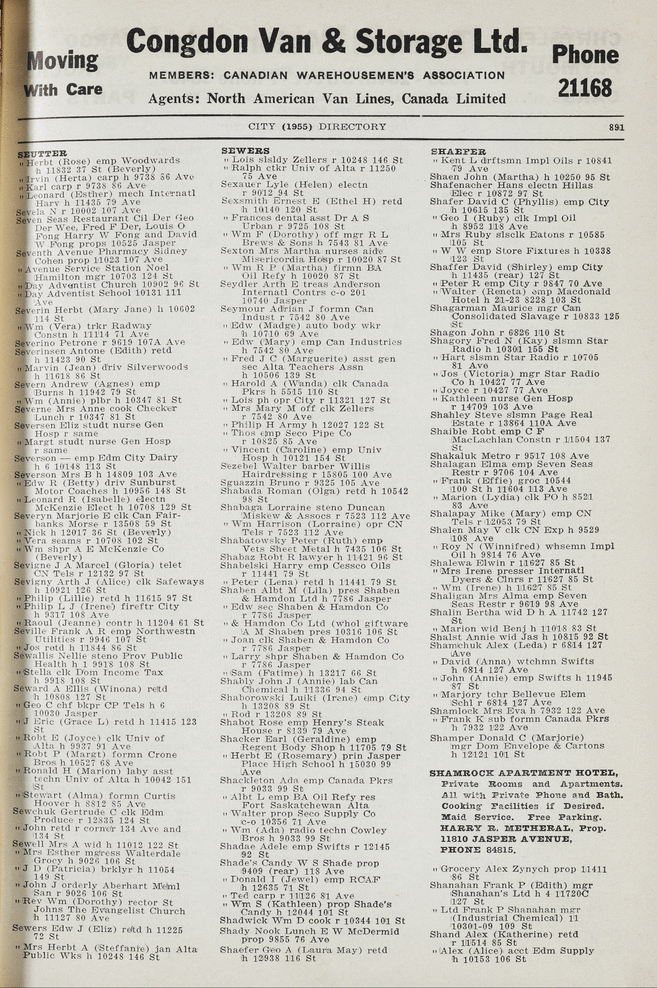 Moving
With Care
Congdon Van & Storage Ltd.
MEMBERS: CANADIAN WAREHOUSEMEN'S ASSOCIATION
Agents: North American Van Lines, Canada Limited
Phone
21168
CITY (1955) DIRECTORY
891
SEUTTER
" Herbt (Rose) emp Woodwards
h 11832 37 St (Beverly)
" Irvin (Herta) carp h 9738 86 Ave
" Karl carp r 9738 86 Ave
" Leonard (Esther) mech Internatl
Harv h 11435 79 Ave
Sevela N r 10002 107 Ave
Seven Seas Restaurant Cil Der Geo
Der Wee, Fred F Der, Louis O
Fong Harry W Fong and David
W Fong props 10525 Jasper
Seventh Avenue Pharmacy Sidney
Cohen prop 11023 107 Ave
" Avenue Service Station Noel
Hamilton mgr 10703 124 St
" Day Adventist Church 10902 96 St
" Day Adventist School 10131 111
Ave
Severin Herbt (Mary Jane) h 10602
114 St
" Wm (Vera) trkr Radway
Constn h 11114 71 Ave
Severino Petrone r 9619 107A Ave
Severinsen Antone (Edith) retd
h 11423 90 St
" Marvin (Jean) driv Silverwoods
h 11618 86 St
Severn Andrew (Agnes) emp
Burns h 11942 79 St
" Wm (Annie) plbr h 10347 81 St
Severne Mrs Anne cook Checker
Lunch r 10347 81 St
Seversen Eliz studt nurse Gen
Hosp r same
" Margt studt nurse Gen Hosp
r same
Severson — emp Edm City Dairy
h 6 10148 113 St
Severson Mrs B h 14809 103 Ave
" Edw R (Betty) driv Sunburst
Motor Coaches h 10956 148 St
" Leonard R (Isabelle) electn
McKenzie Elect h 10708 129 St
Severyn Marjorie E clk Can Fair-
banks Morse r 13508 59 St
" Nick h 12017 36 St (Beverly)
" Vera seams r 10708 102 St
" Wm shpr A E McKenzie Co
(Beverly)
Sevigne J A Marcel (Gloria) telet
CN Tels r 12132 97 St
Sevigny Arth J (Alice) clk Safeways
h 10921 126 St
" Philip (Lillie) retd h 11615 97 St
" Philip L J (Irene) fireftr City
h 9317 108 Ave
" Raoul (Jeanne) contr h 11204 61 St
Seville Frank A R emp Northwestn
Utilities r 9946 107 St
" Jos retd h 11844 86 St
Sewallis Nellie steno Prov Public
Health h 1 9918 108 St
" Stella clk Dom Income Tax
h 9918 108 St
Seward A Ellis (Winona) retd
h 10808 127 St
" Geo C chf bkpr CP Tels h 6
10030 Jasper
" J Eric (Grace L) retd h 11415 123
St
" Robt E (Joyce) clk Univ of
Alta h 9937 91 Ave
" Robt P (Margt) formn Crone
Bros h 10527 68 Ave
" Ronald H (Marion) laby asst
techn Univ of Alta h 10042 151
St
" Stewart (Alma) formn Curtis
Hoover h 8812 85 Ave
Sewchuk Gertrude C clk Edm
Produce r 12835 124 St
" John retd r corner 134 Ave and
134 St
Sewell Mrs A wid h 11012 122 St
" Mrs Esther mgtess Walterdale
Grocy h 9026 106 St
" J D (Patricia) brklyr h 11054
149 St
" John J orderly Aberhart Meml
San r 9026 106 St
" Rev Wm (Dorothy) rector St
Johns The Evangelist Church
h 11127 80 Ave
Sewers Edw J (Eliz) retd h 11225
72 St
" Mrs Herbt A (Steffanie) jan Alta
Public Wks h 10248 146 St
SEWERS
" Lois slsldy Zellers r 10248 146 St
" Ralph ctkr Univ of Alta r 11250
75 Ave
Sexauer Lyle (Helen) electn
r 9012 94 St
Sexsmith Ernest E (Ethel H) retd
h 10140 120 St
" Frances dental asst Dr A S
Urban r 9725 108 St
" Wm F (Dorothy) off mgr R L
Brews & Sons h 7543 81 Ave
Sexton Mrs Martha nurses aide
Misericordia Hosp r 10020 87 St
" Wm R P (Martha) firmn BA
Oil Refy h 10020 87 St
Seydler Arth E treas Anderson
Internatl Contrs c-o 201
10740 Jasper
Seymour Adrian J formn Can
Indust r 7542 80 Ave
" Edw (Madge) auto body wkr
h 10710 69 Ave
" Edw (Mary) emp Can Industries
h 7542 80 Ave
" Fred J C (Marguerite) asst gen
sec Alta Teachers Assn
h 10506 139 St
" Harold A (Wanda) clk Canada
Pkrs h 5515 110 St
" Lois ph opr City r 11321 127 St
" Mrs Mary M off clk Zellers
r 7542 80 Ave
" Philip H Army h 12027 122 St
" Thos emp Seco Pipe Co
r 10825 85 Ave
" Vincent (Caroline) emp Univ
Hosp h 10121 154 St
Sezebel Walter barber Willis
Hairdressing r 15805 100 Ave
Sguazzin Bruno r 9325 105 Ave
Shabada Roman (Olga) retd h 10542
98 St
Shabaga Lorraine steno Duncan
Miskew & Assocs r 7523 112 Av
" Wm Harrison (Lorraine) opr CN
Tels r 7523 112 Av
Shabatowsky Peter (Ruth) emp
Vets Sheet Metal h 7435 106 St
Shabaz Robt R lawyer h 11421 96 St
Shabelski Harry emp Cessco Oils
r 11441 79 St
" Peter (Lena) retd h 11441 79 St
Shaben Albt M (Lila) pres Shaben
& Hamdon Ltd h 7786 Jasper
" Edw sec Shaben & Hamdon Co
r 7786 Jasper
" & Hamdon Co Ltd (whol giftware
A M Shaben pres 10316 106 St
" Joan clk Shaben & Hamdon Co
r 7786 Jasper
" Larry shpr Shaben & Hamdon Co
r 7786 Jasper
" Sam (Fatime) h 13217 66 St
Shably John J (Annie) lab Can
Chemical h 11336 94 St
Shaborowski Luiki (Irene) emp City
h 13208 89 St
" Rod r 13208 89 St
Shabot Rose emp Henry's Steak
House r 8139 79 Ave
Shacker Earl (Geraldine) emp
Regent Body Shop h 11705 79 St
" Herbt E (Rosemary) prin Jasper
Place High School h 15030 99
Ave
Shackleton Ada emp Canada Pkrs
r 9033 99 St
" Albt L emp BA Oil Refy res
Fort Saskatchewan Alta
" Walter prop Seco Supply Co
c-o 10356 71 Ave
" Wm (Ada) radio techn Cowley
Bros h 9033 99 St
Shadae Adele emp Swifts r 12145
92 St
Shade's Candy W S Shade prop
9409 (rear) 118 Ave
" Donald I (Jewel) emp RCAF
h 12635 71 St
" Ted carp r 11126 81 Ave
" Wm S (Kathleen) prop Shade's
Candy h 12044 101 St
Shadwick Wm D cook r 10344 101 St
Shady Nook Lunch E W McDermid
prop 9855 76 Ave
Shaefer Geo A (Laura May) retd
h 12938 116 St
SHAEFER
" Kent L drftsmn Impl Oils r 10841
79 Ave
Shaen John (Martha) h 10250 95 St
Shafenacher Hans electn Hillas
Elec r 10872 97 St
Shafer David C (Phyllis) emp City
h 10615 135 St
" Geo I (Ruby) clk Impl Oil
h 8952 118 Ave
" Mrs Ruby slsclk Eatons r 10585
105 St
" W W emp Store Fixtures h 10338
123 St
Shaffer David (Shirley) emp City
h 11435 (rear) 127 St
" Peter R emp City r 9847 70 Ave
" Walter (Reneta) emp Macdonald
Hotel h 21-23 8228 103 St
Shagarman Maurice mgr Can
Consolidated Slavage r 10833 125
St
Shagon John r 6826 110 St
Shagory Fred N (Kay) slsmn Star
Radio h 10301 155 St
" Hart slsmn Star Radio r 10705
81 Ave
" Jos (Victoria) mgr Star Radio
Co h 10427 77 Ave
" Joyce r 10427 77 Ave
" Kathleen nurse Gen Hosp
r 14709 103 Ave
Shahley Steve slsmn Page Real
Estate r 13864 110A Ave
Shaible Robt emp C F
MacLachlan Constn r 11504 137
St
Shakaluk Metro r 9517 108 Ave
Shalagan Elma emp Seven Seas
Restr r 9706 104 Ave
" Frank (Effie) groc 10544
100 St h 11604 113 Ave
" Marion (Lydia) clk PO h 8521
83 Ave
Shalapay Mike (Mary) emp CN
Tels r 12053 79 St
Shalen May V clk CN Exp h 9529
108 Ave
" Roy N (Winnifred) whsemn Impl
Oil h 9814 76 Ave
Shalewa Elwin r 11627 85 St
" Mrs Irene presser Internatl
Dyers & Clnrs r 11627 85 St
" Wm (Irene) h 11627 85 St
Shaligan Mrs Alma emp Seven
Seas Restr r 9619 98 Ave
Shalin Bertha wid D h A 11742 127
St
" Marion wid Benj h 11018 83 St
Shalst Annie wid Jas h 10815 92 St
Shamchuk Alex (Leda) r 6814 127
Ave
" David (Anna) wtchmn Swifts
h 6814 127 Ave
" John (Annie) emp Swifts h 11945
87 St
" Marjory tchr Bellevue Elem
Schl r 6814 127 Ave
Shamlock Mrs Eva h 7932 122 Ave
" Frank K sub formn Canada Pkrs
h 7932 122 Ave
Shamper Donald C (Marjorie)
mgr Dom Envelope & Cartons
h 12121 101 St
SHAMROCK APARTMENT HOTEL,
Private Rooms and Apartments.
All with Private Phone and Bath.
Cooking Facilities if Desired.
Maid Service. Free Parking.
HARRY R. METHERAL, Prop.
11810 JASPER AVENUE,
PHONE 84815.
" Grocery Alex Zynych prop 11411
86 St
Shanahan Frank P (Edith) mgr
Shanahan's Ltd h 4 11720C
127 St
" Ltd Frank P Shanahan mgr
(Industrial Chemical) 11
10301-09 109 St
Shand Alex (Katherine) retd
r 11514 85 St
" Alex (Alice) acct Edm Supply
h 10153 106 St